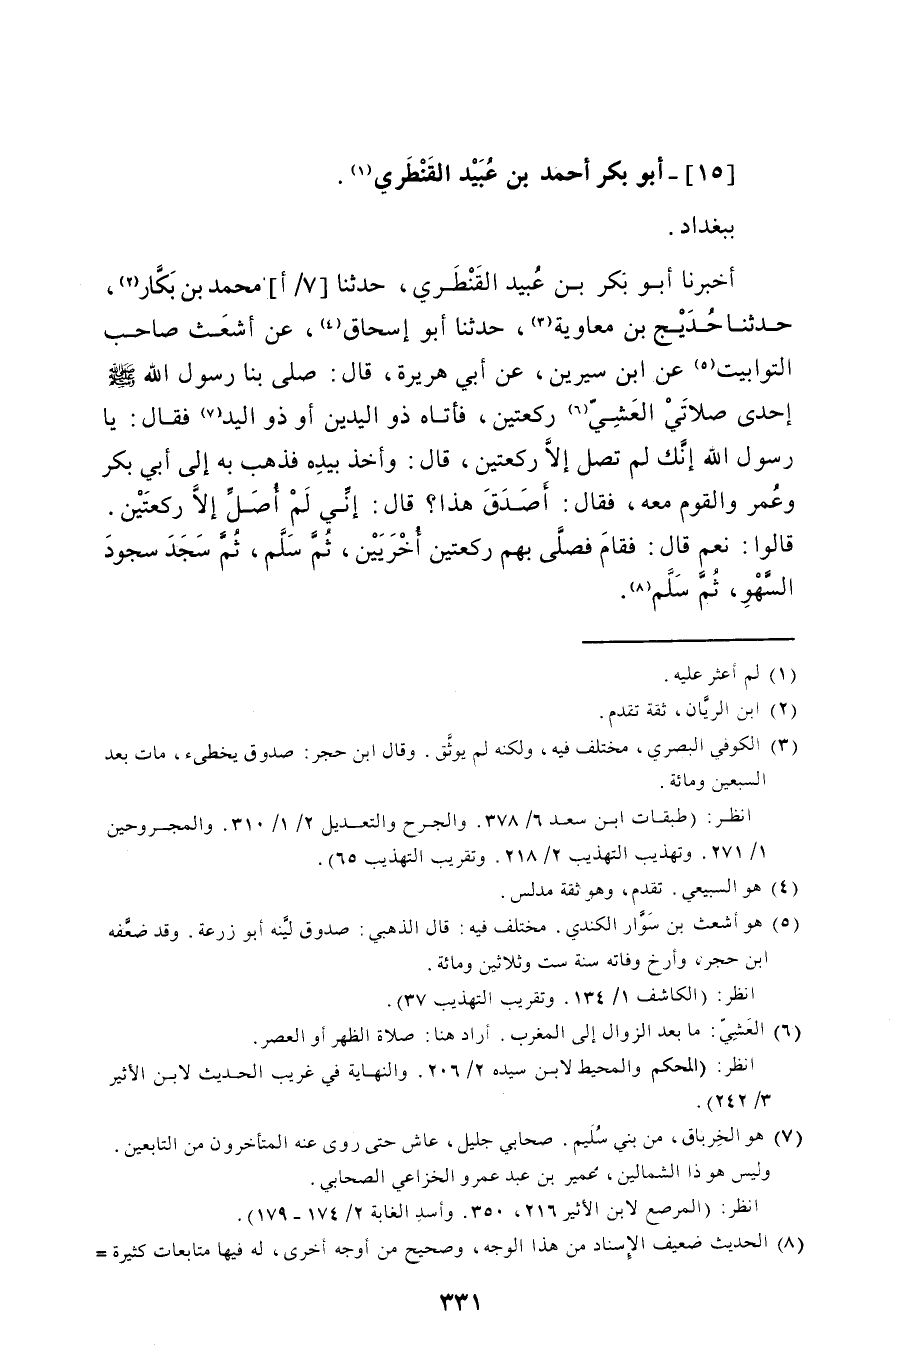 [١٥] - أبو بكر أحمد بن عُبَيْد القَنْطَري(١).
ببغداد.
أخبرنا أبو بَكر بن عُبيد القَنْطَري، حدثنا [٧/ أ] محمد بن بَكَّار(٢)،
حدثنا حُدَيْج بن معاوية(٣)، حدثنا أبو إسحاق(٤)، عن أشعَث صاحب
التوابيت(٥) عن ابن سيرين، عن أبي هريرة، قال: صلى بنا رسول الله ﷺ
إحدى صلاتَيْ العَشِيّ(٦) ركعتين، فأتاه ذو اليدين أو ذو اليد(٧) فقال: يا
رسول الله إنَّك لم تصل إلاَّ ركعتين، قال: وأخذ بيدِه فذهب به إلى أبي بكر
وعُمر والقوم معه، فقال: أَصَدَقَ هذا؟ قال: إنِّي لَمْ أُصَلِّ إلاَّ ركعتَيْن.
قالوا: نعم قال: فقامَ فصلَّى بهم ركعتين أُخْرَيَيْن، ثُمَّ سَلَّم، ثُمَّ سَجَدَ سجودَ
السَّهْوِ، ثُمَّ سَلَّم(٨).
(١) لم أعثر عليه.
(٢) ابن الريَّان، ثقة تقدم.
(٣) الكوفي البصري، مختلف فيه، ولكنه لم يوثَّق. وقال ابن حجر: صدوق يخطىء، مات بعد
السبعين ومائة.
انظر: (طبقات ابن سعد ٦/ ٣٧٨. والجرح والتعديل ٢/ ١/ ٣١٠. والمجروحين
١/ ٢٧١. وتهذيب التهذيب ٢/ ٢١٨. وتقريب التهذيب ٦٥).
(٤) هو السبيعي. تقدم، وهو ثقة مدلس.
(٥) هو أشعث بن سَوَّار الكندي. مختلف فيه: قال الذهبي: صدوق ليَّنه أبو زرعة. وقد ضعَّفه
ابن حجر، وأرخ وفاته سنة ست وثلاثين ومائة.
انظر: (الكاشف ١/ ١٣٤. وتقريب التهذيب ٣٧).
(٦) العَشِيّ: ما بعد الزوال إلى المغرب. أراد هنا: صلاة الظهر أو العصر.
انظر: (المحكم والمحيط لابن سيده ٢/ ٢٠٦. والنهاية في غريب الحديث لابن الأثير
٣/ ٢٤٢).
(٧) هو الخِرباق، من بني سُلَيم. صحابي جليل، عاش حتى روى عنه المتأخرون من التابعين.
وليس هو ذا الشمالين، عمير بن عبد عمرو الخزاعي الصحابي.
انظر: (المرصع لابن الأثير ٢١٦، ٣٥٠. وأسد الغابة ٢/ ١٧٤ - ١٧٩).
(٨) الحديث ضعيف الإسناد من هذا الوجه، وصحيح من أوجه أخرى، له فيها متابعات كثيرة =
٣٣١